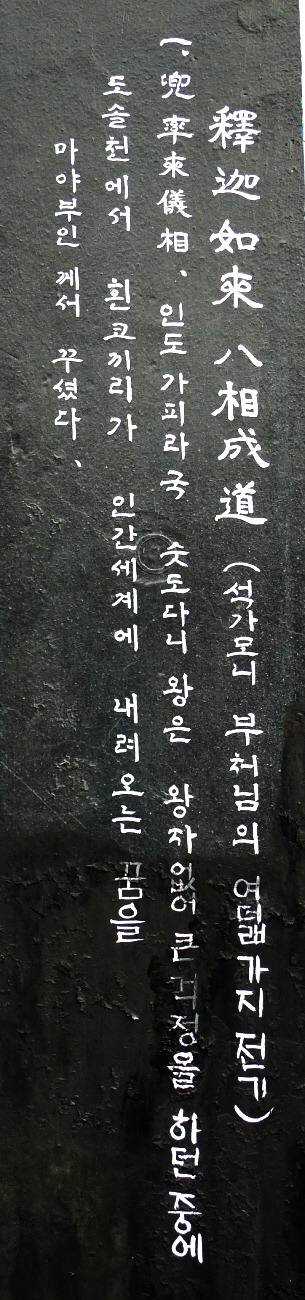 釋迦如來 八相成道 (석가모니 부처님의 여덟가지 전기)
一. 兜率來儀相、인도 가피라국 숫도다니 왕은 왕자 없어 큰 걱정을 하던 중에
도솔천에서 흰코끼리가 인간세계에 내려오는 꿈을
마야부인께서 꾸셨다、